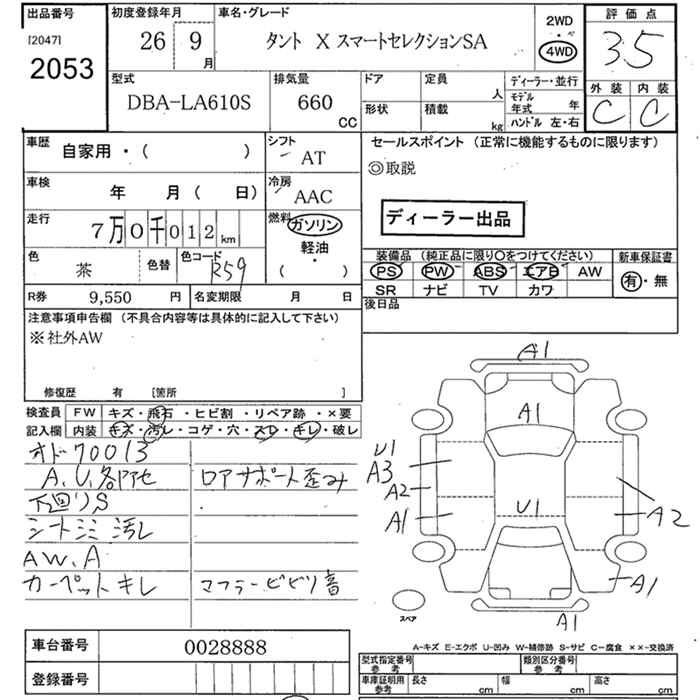 出品番号
[2047]
2053
初度登録年月
26 9 月
車名・グレード
タント X スマートセレクションSA
2WD
・
4WD
評価点
3.5
外装 内装
C C
型式
DBA-LA610S
排気量
660 CC
ドア
形状
定員 人
積載 kg
ディーラー・並行
モデル年式 年
ハンドル 左・右
車歴
自家用・( )
シフト
AT
車検
年 月( 日)
冷房
AAC
走行
7万0千012km
燃料
ガソリン
軽油
・
( )
色
茶
色替
色コード
R59
R券 9,550 円
名変期限 月 日
セールスポイント (正常に機能するものに限ります)
◎取説
ディーラー出品
装備品 (純正品に限り○をつけてください)
PS PW ABS エアB AW
SR ナビ TV カワ
新車保証書
有・無
後日品
注意事項申告欄 (不具合内容等は具体的に記入して下さい)
※社外AW
修復歴 有 [箇所 ]
検査員
記入欄
FW キズ・飛石・ヒビ割・リペア跡・×要
内装 キズ・汚レ・コゲ・穴・スレ・キレ・破レ
オド70013
A.U.各所他
下廻りS
シートシミ 汚レ
AW.A
カーペットキレ
ロアサポート歪み
マフラービビリ音
A1
A1
U1
A3
A2
A1
U1
A2
A1
A1
スペア
A-キズ E-エクボ U-凹み W-補修跡 S-サビ C-腐食 ××-交換済
車台番号 0028888
登録番号
型式指定番号 参考
類別区分番号 参考
車庫証明用 参考
長さ cm
幅 cm
高さ cm